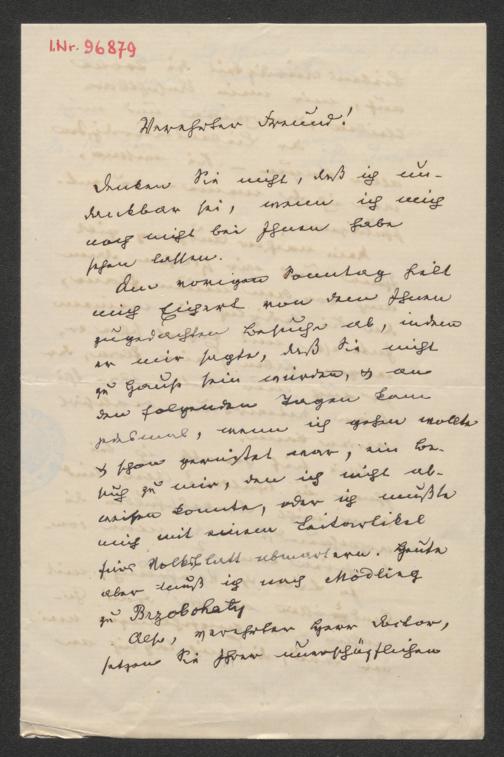 I.Nr. 96879
Verehrter Freund!
Denken Sie nicht, daß ich un-
dankbar sei, wenn ich mich
noch nicht bei Ihnen habe
sehen lassen.
Am vorigen Sonntag hielt
mich Eichert von dem Ihnen
zugedachten Besuche ab, indem
er mir sagte, daß Sie nicht
zu Hause sein würden, & an
den folgenden Tagen kam
jedesmal, wenn ich gehen wollte
& schon gerüstet war, ein Be-
such zu mir, den ich nicht ab-
weisen konnte, oder ich mußte
mich mit einem Leitartikel
fürs Volksblatt abmartern. Heute
aber muß ich nach Mödling
zu Brzobohaty
Also, verehrter Herr Doctor,
setzen Sie Ihrer unerschöpflichen